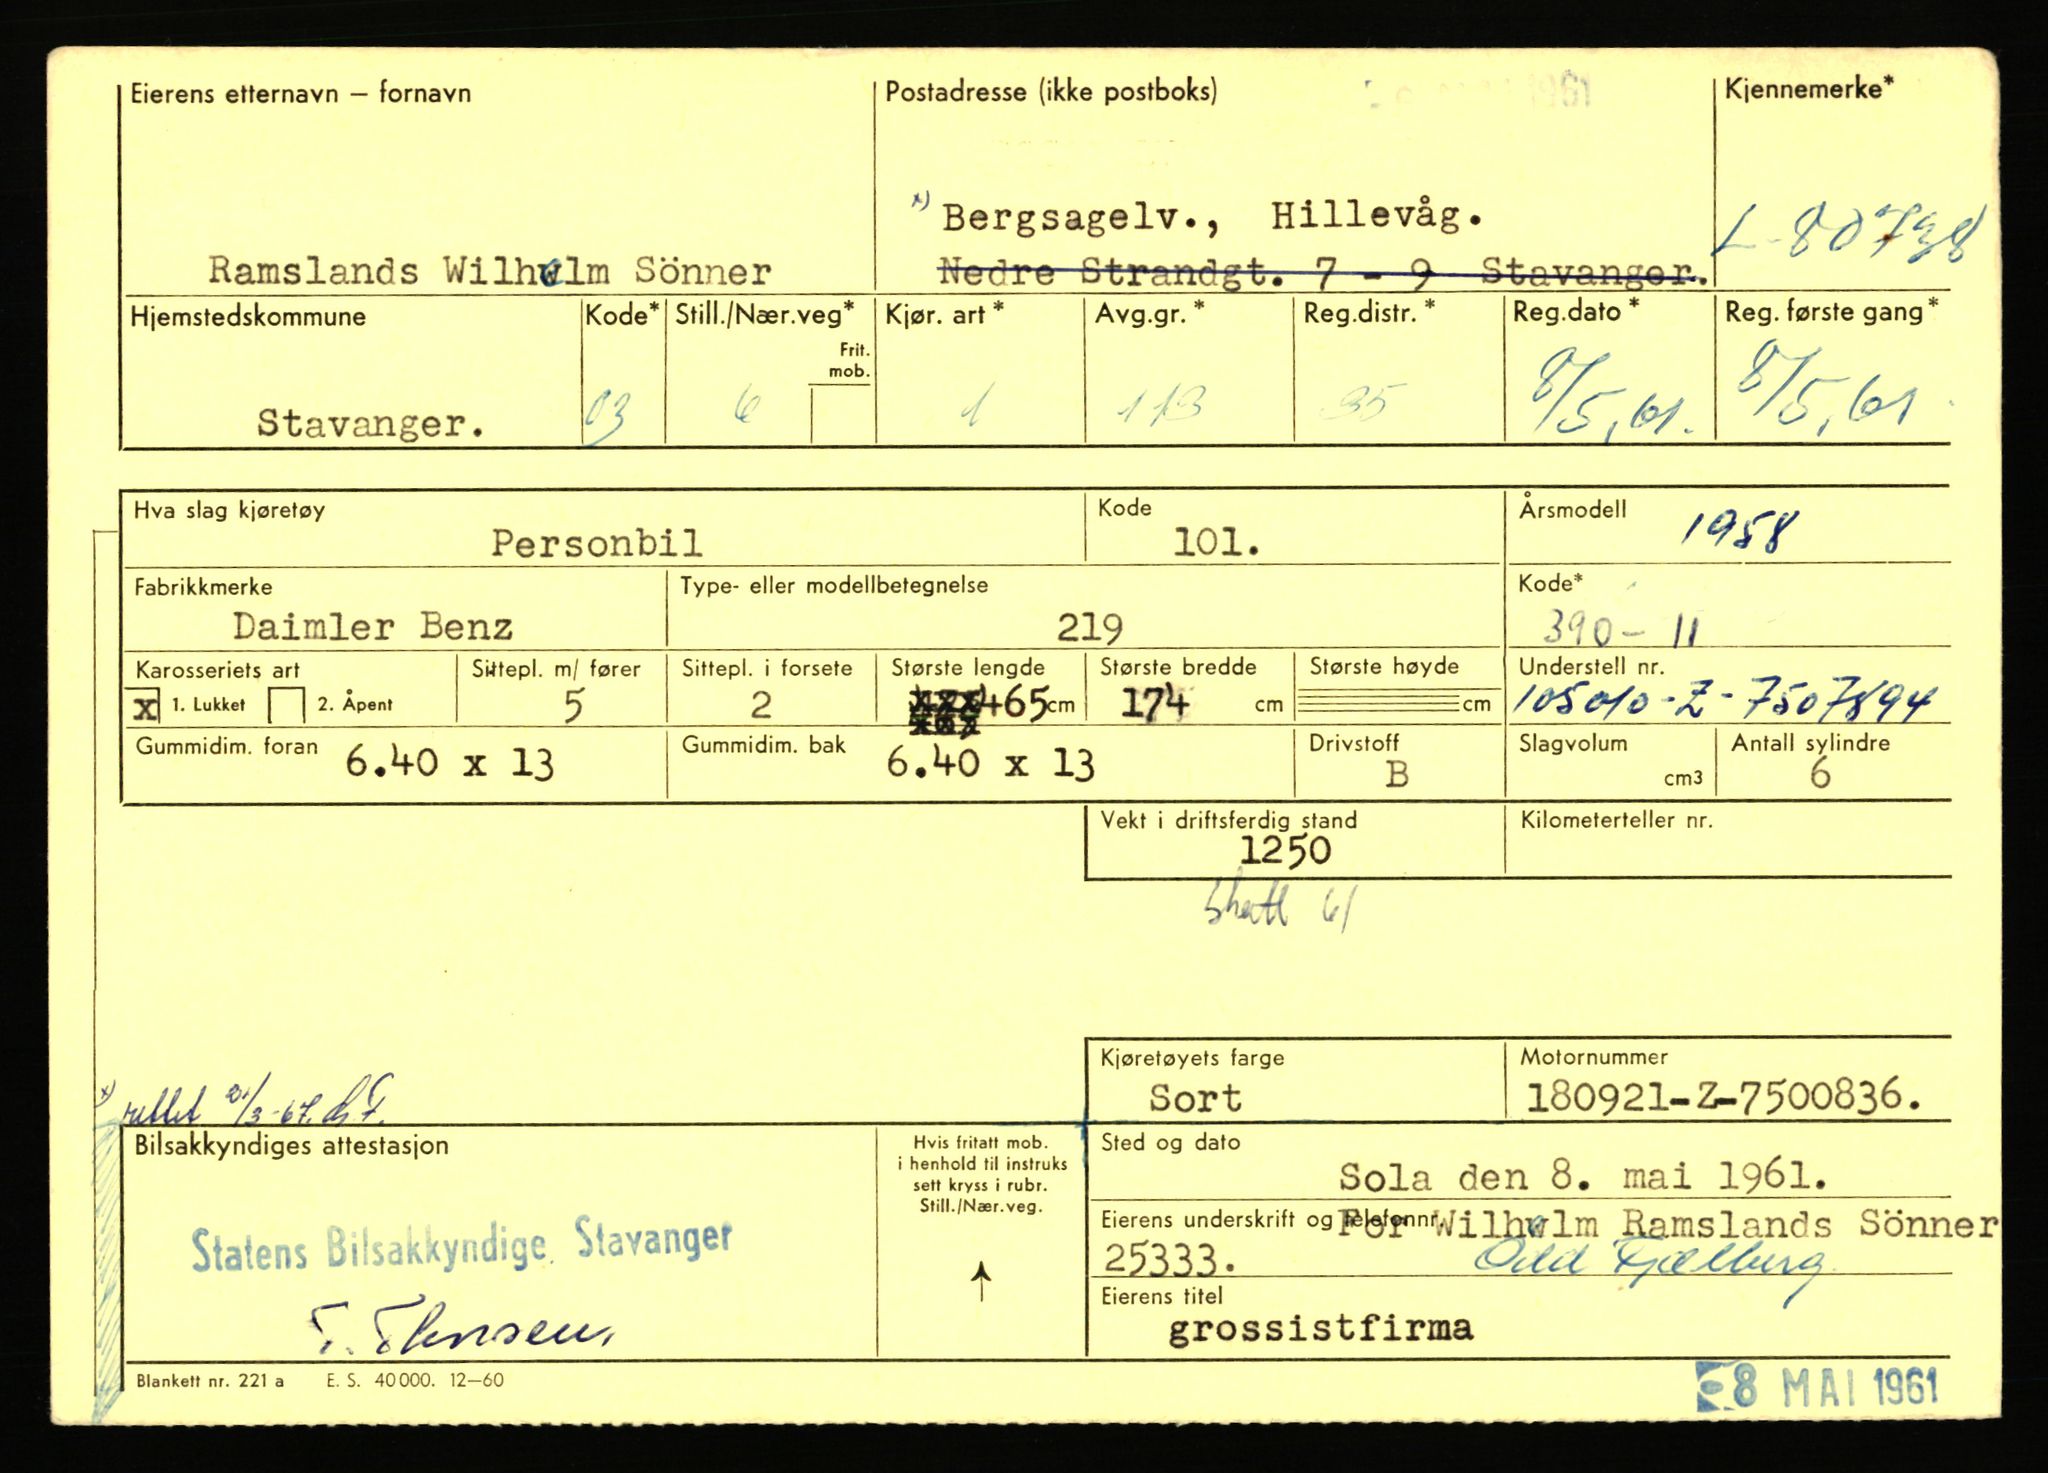 Eierens etternavn – fornavn
Postadresse (ikke postboks)
1961
Kjennemerke*
x) Bergsagelv., Hillevåg.
L-80738
Ramslands Wilhelm Sönner
Nedre Strandgt. 7 - 9 Stavanger.
Hjemstedskommune
Kode*
Still./Nær.veg*
Kjør. art*
Avg.gr.*
Reg.distr.*
Reg.dato*
Reg. første gang*
Frit. mob.
Stavanger.
03
6
1
113
35
8/5, 61.
8/5, 61
Hva slag kjøretøy
Personbil
Kode
101.
Årsmodell
1958
Fabrikkmerke
Daimler Benz
Type- eller modellbetegnelse
219
Kode*
390 - 11
Karosseriets art
x 1. Lukket 2. Åpent
Sittepl. m/ fører
5
Sittepl. i forsete
2
Største lengde
465cm
Største bredde
174 cm
Største høyde
cm
Understell nr.
105010-Z-7507894
Gummidim. foran
6.40 x 13
Gummidim. bak
6.40 x 13
Drivstoff
B
Slagvolum
cm3
Antall sylindre
6
Vekt i driftsferdig stand
1250
Kilometerteller nr.
61
Kjøretøyets farge
Sort
Motornummer
180921-Z-7500836.
x) rettet /3-67.
Bilsakkyndiges attestasjon
Hvis fritatt mob.
i henhold til instruks
sett kryss i rubr.
Still./Nær.veg.
Sted og dato
Sola den 8. mai 1961.
Statens Bilsakkyndige. Stavanger
Eierens underskrift og telefonnr.
For Wilhelm Ramslands Sönner
25333.
Odd Fjelberg
Eierens titel
grossistfirma
Blankett nr. 221 a E. S. 40 000. 12–60
8 MAI 1961